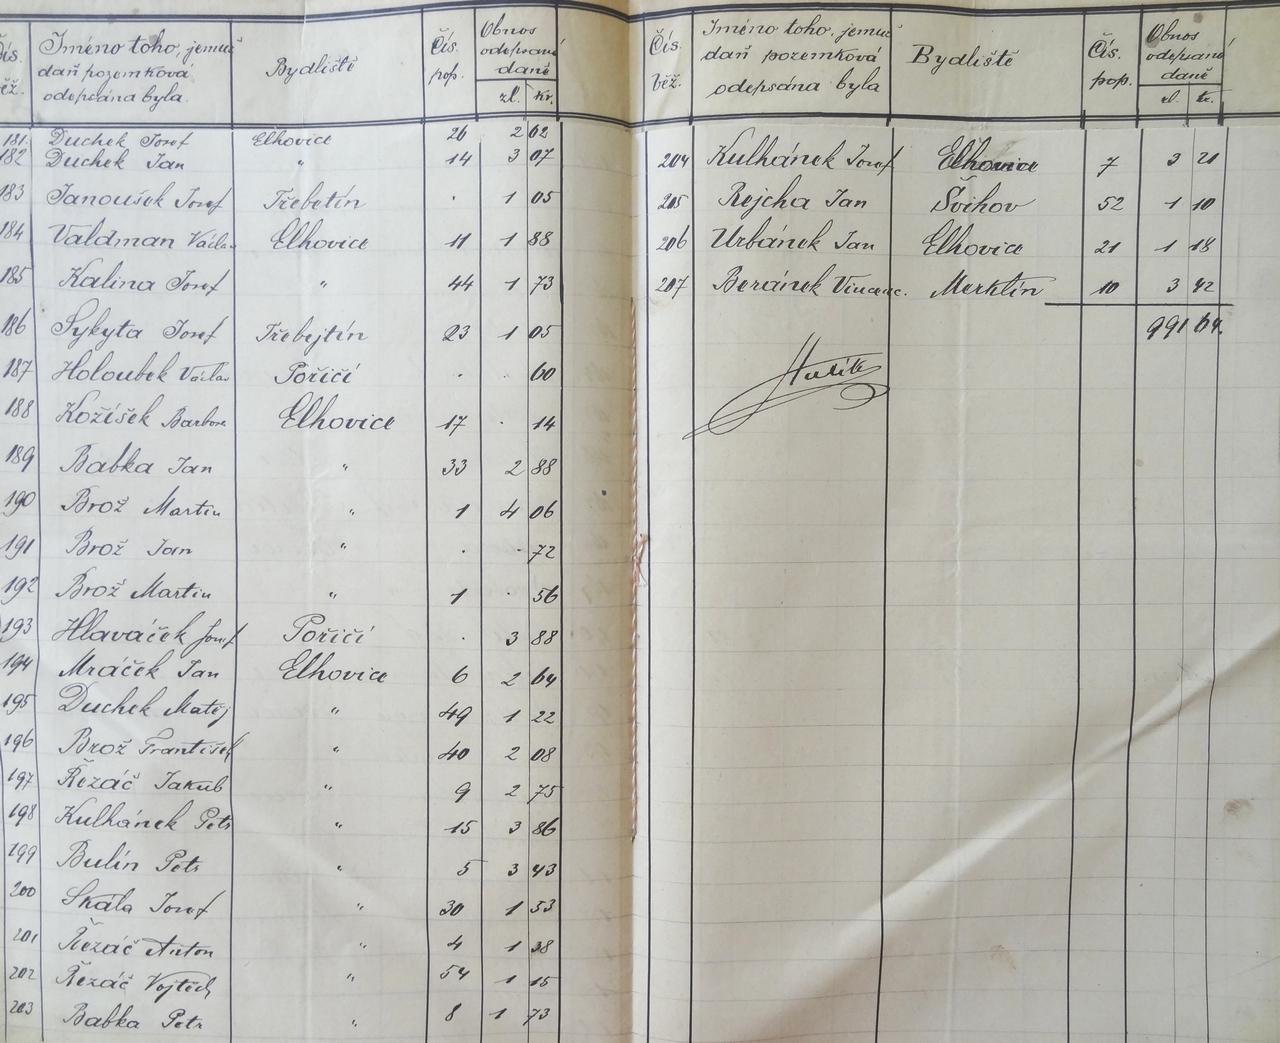 Čís. běž. Jméno toho, jemuž daň pozemková odepsána byla. Bydliště Čís. pop. Obnos odepsané daně zl. kr.
181. Duchek Josef Elhovice 26 2 62
182 Duchek Jan " 14 3 07
183 Janoušek Josef Třebetín . 1 05
184 Valdman Václav Elhovice 11 1 88
185 Kalina Josef " 44 1 73
186 Sykyta Josef Třebejtín 23 1 05
187 Holoubek Václav Poříčí . . 60
188 Kožíšek Barbora Elhovice 17 . 14
189 Babka Jan " 33 2 88
190 Brož Martin " 1 4 06
191 Brož Jan " . . 72
192 Brož Martin " 1 . 56
193 Hlaváček Josef Poříčí . 3 88
194 Mráček Jan Elhovice 6 2 64
195 Duchek Matěj " 49 1 22
196 Brož František " 40 2 08
197 Řezáč Jakub " 9 2 75
198 Kulhánek Petr " 15 3 86
199 Bulín Petr " 5 3 43
200 Skála Josef " 30 1 53
201 Řezáč Anton " 4 1 38
202 Řezáč Vojtěch " 54 1 15
203 Babka Petr " 8 1 73
Čís. běž. Jméno toho, jemuž daň pozemková odepsána byla Bydliště Čís. pop. Obnos odepsané daně zl. kr.
204 Kulhánek Josef Elhovice 7 3 21
205 Rejcha Jan Švihov 52 1 10
206 Urbánek Jan Elhovice 21 1 18
207 Beránek Vincenc. Merklín 10 3 42
991 64.